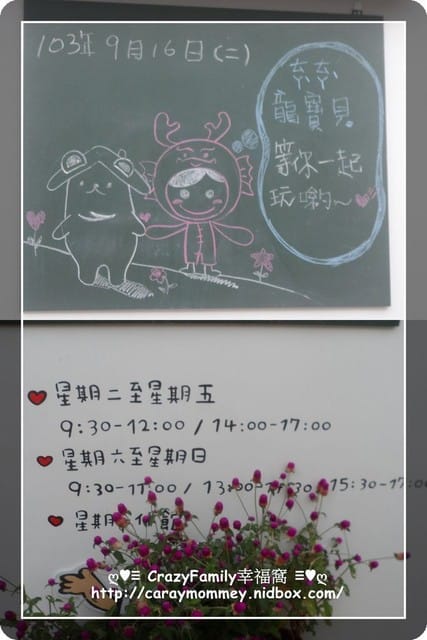 103年9月16日(二)
龍寶貝
等你一起
玩喲~
星期二至星期五
9:30-12:00 / 14:00-17:00
星期六至星期日
9:30-11:00 / 13:00 / 15:30-17:00
星期
ღ♥≡ CrazyFamily幸福窩 ≡♥ღ
http://caraymommey.nidbox.com/